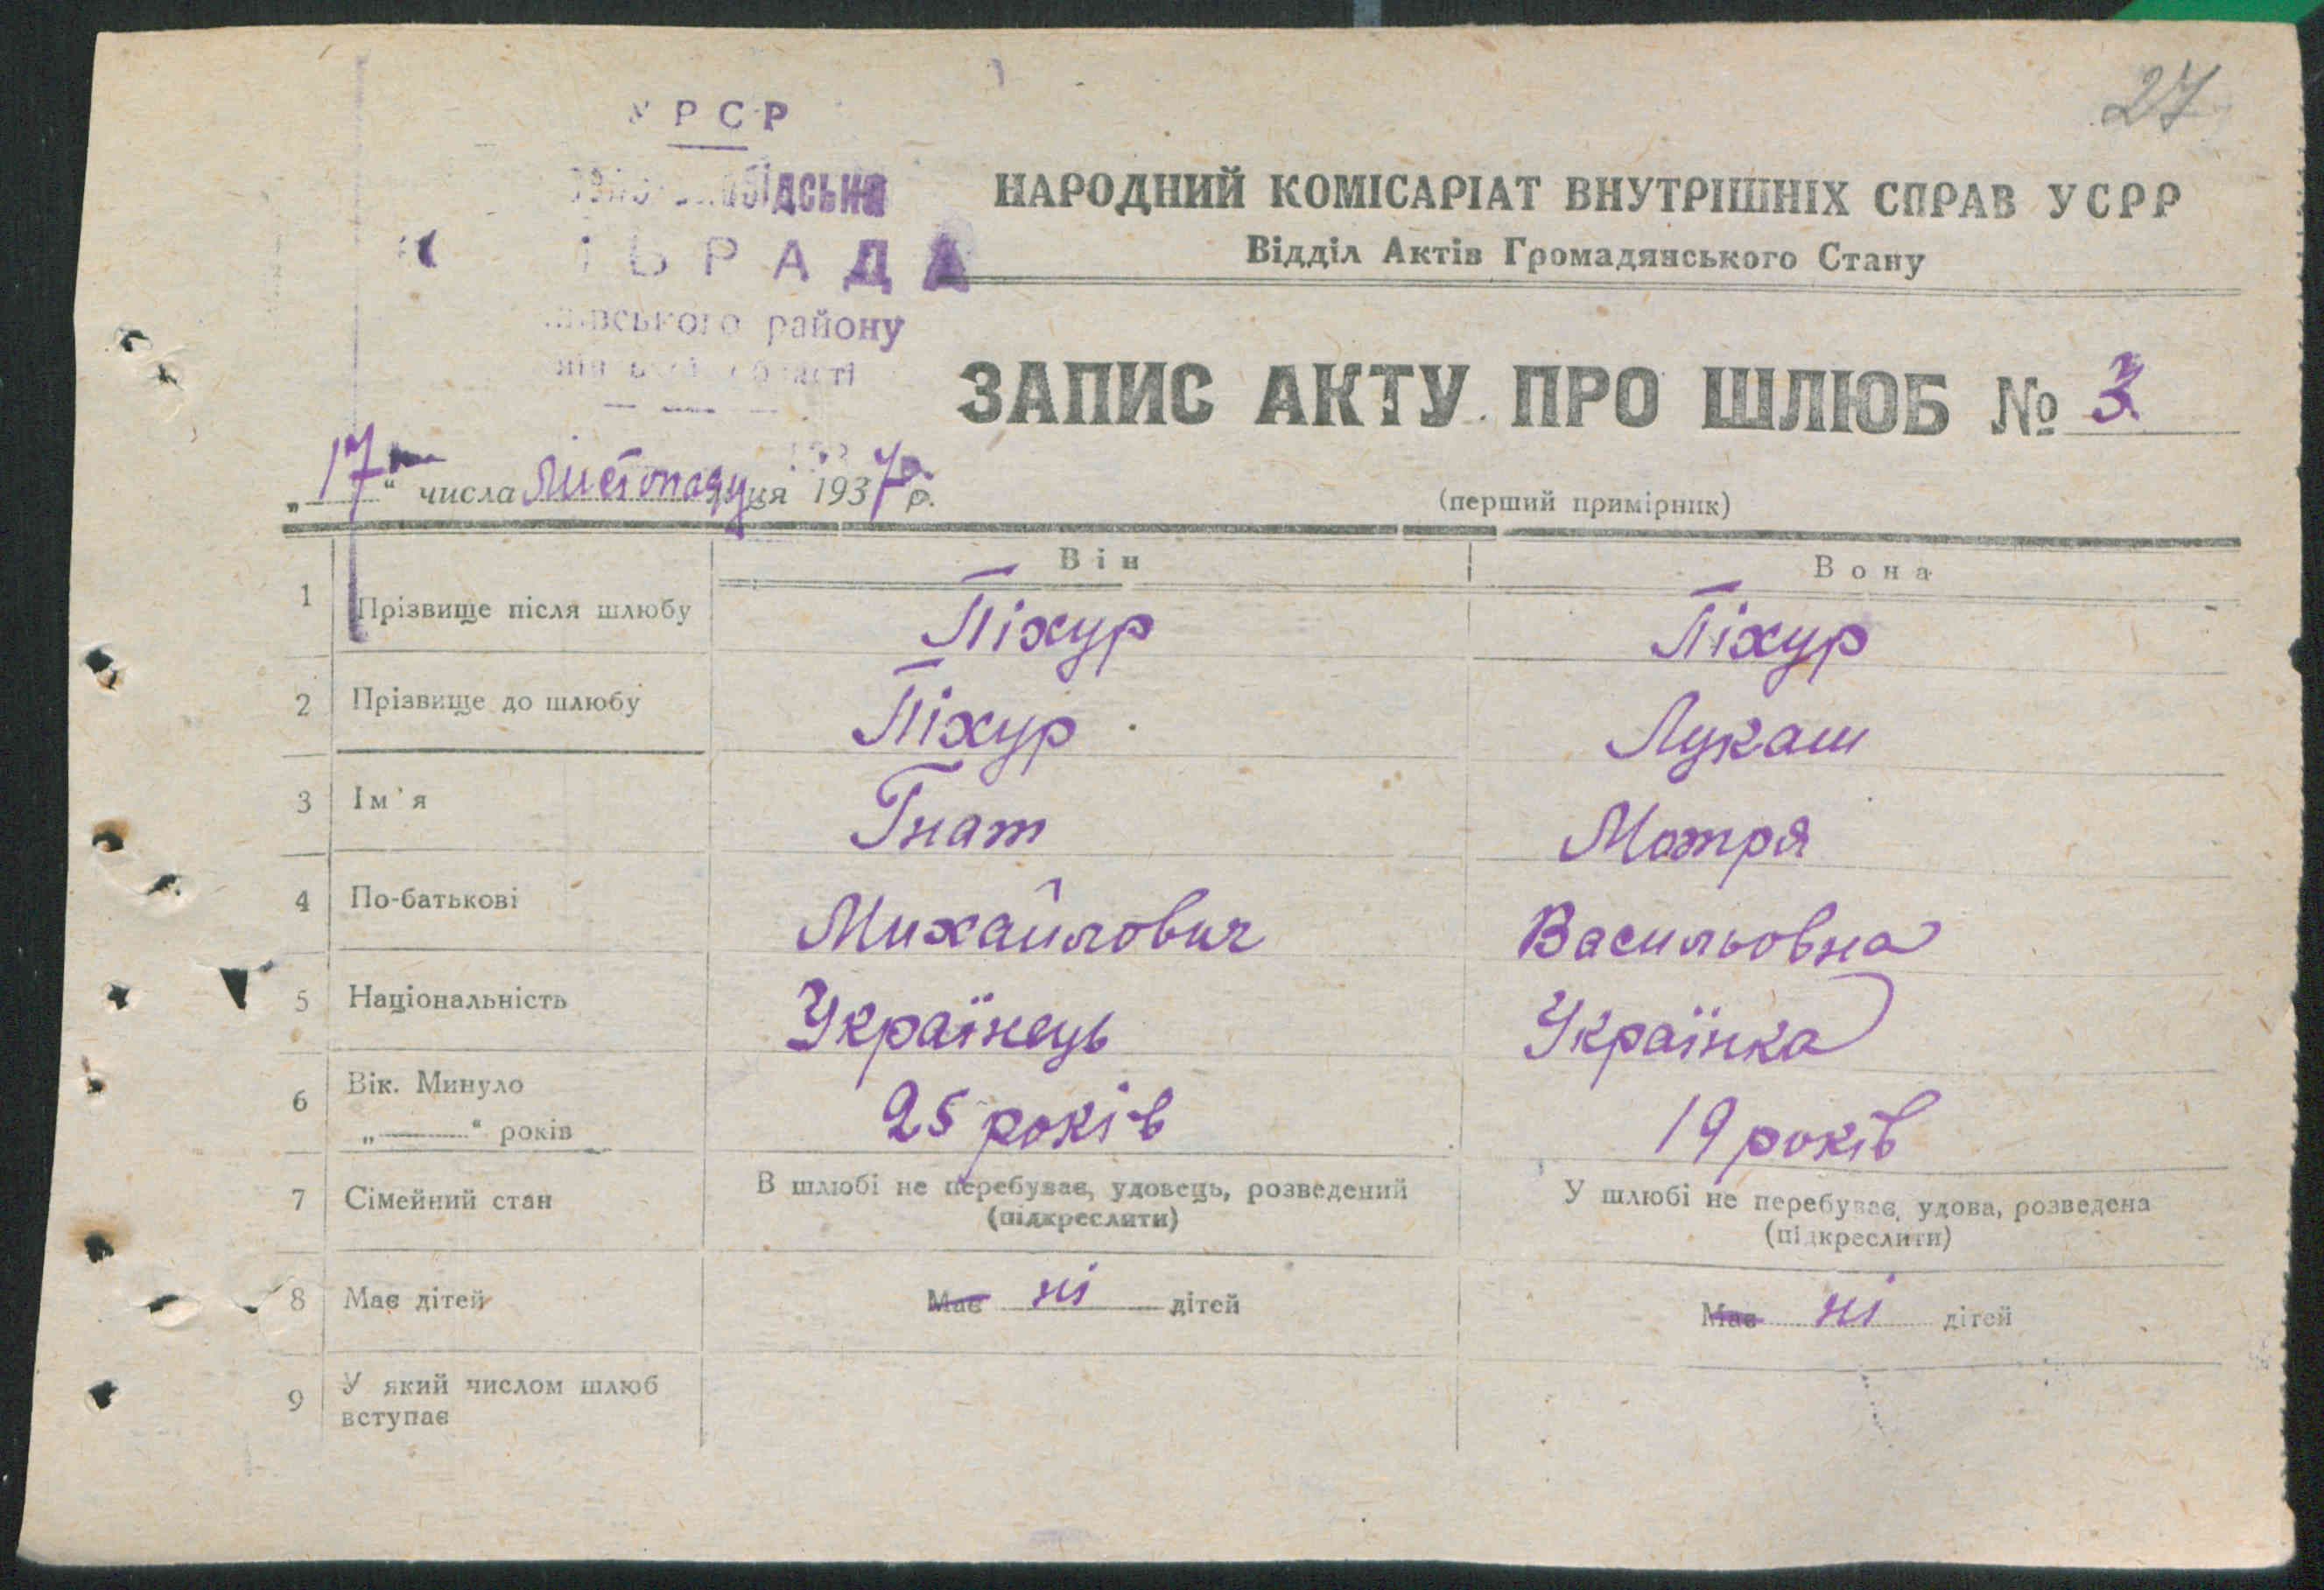 27
УРСР
РАДА
району
НАРОДНИЙ КОМІСАРІАТ ВНУТРІШНІХ СПРАВ УСРР
Відділ Актів Громадянського Стану
ЗАПИС АКТУ ПРО ШЛЮБ № 3
„17“ числа Листопаду ця 1937 р.
(перший примірник)
Він Вона
1 Прізвище після шлюбу Піхур Піхур
2 Прізвище до шлюбу Піхур Лукаш
3 Ім'я Гнат Мотря
4 По-батькові Михайлович Васильовна
5 Національність Українець Українка
6 Вік. Минуло
„——“ років 25 років 19 років
7 Сімейний стан В шлюбі не перебуває, удовець, розведений У шлюбі не перебуває, удова, розведена
(підкреслити) (підкреслити)
8 Має дітей Має ні дітей Має ні дітей
9 У який числом шлюб
вступає